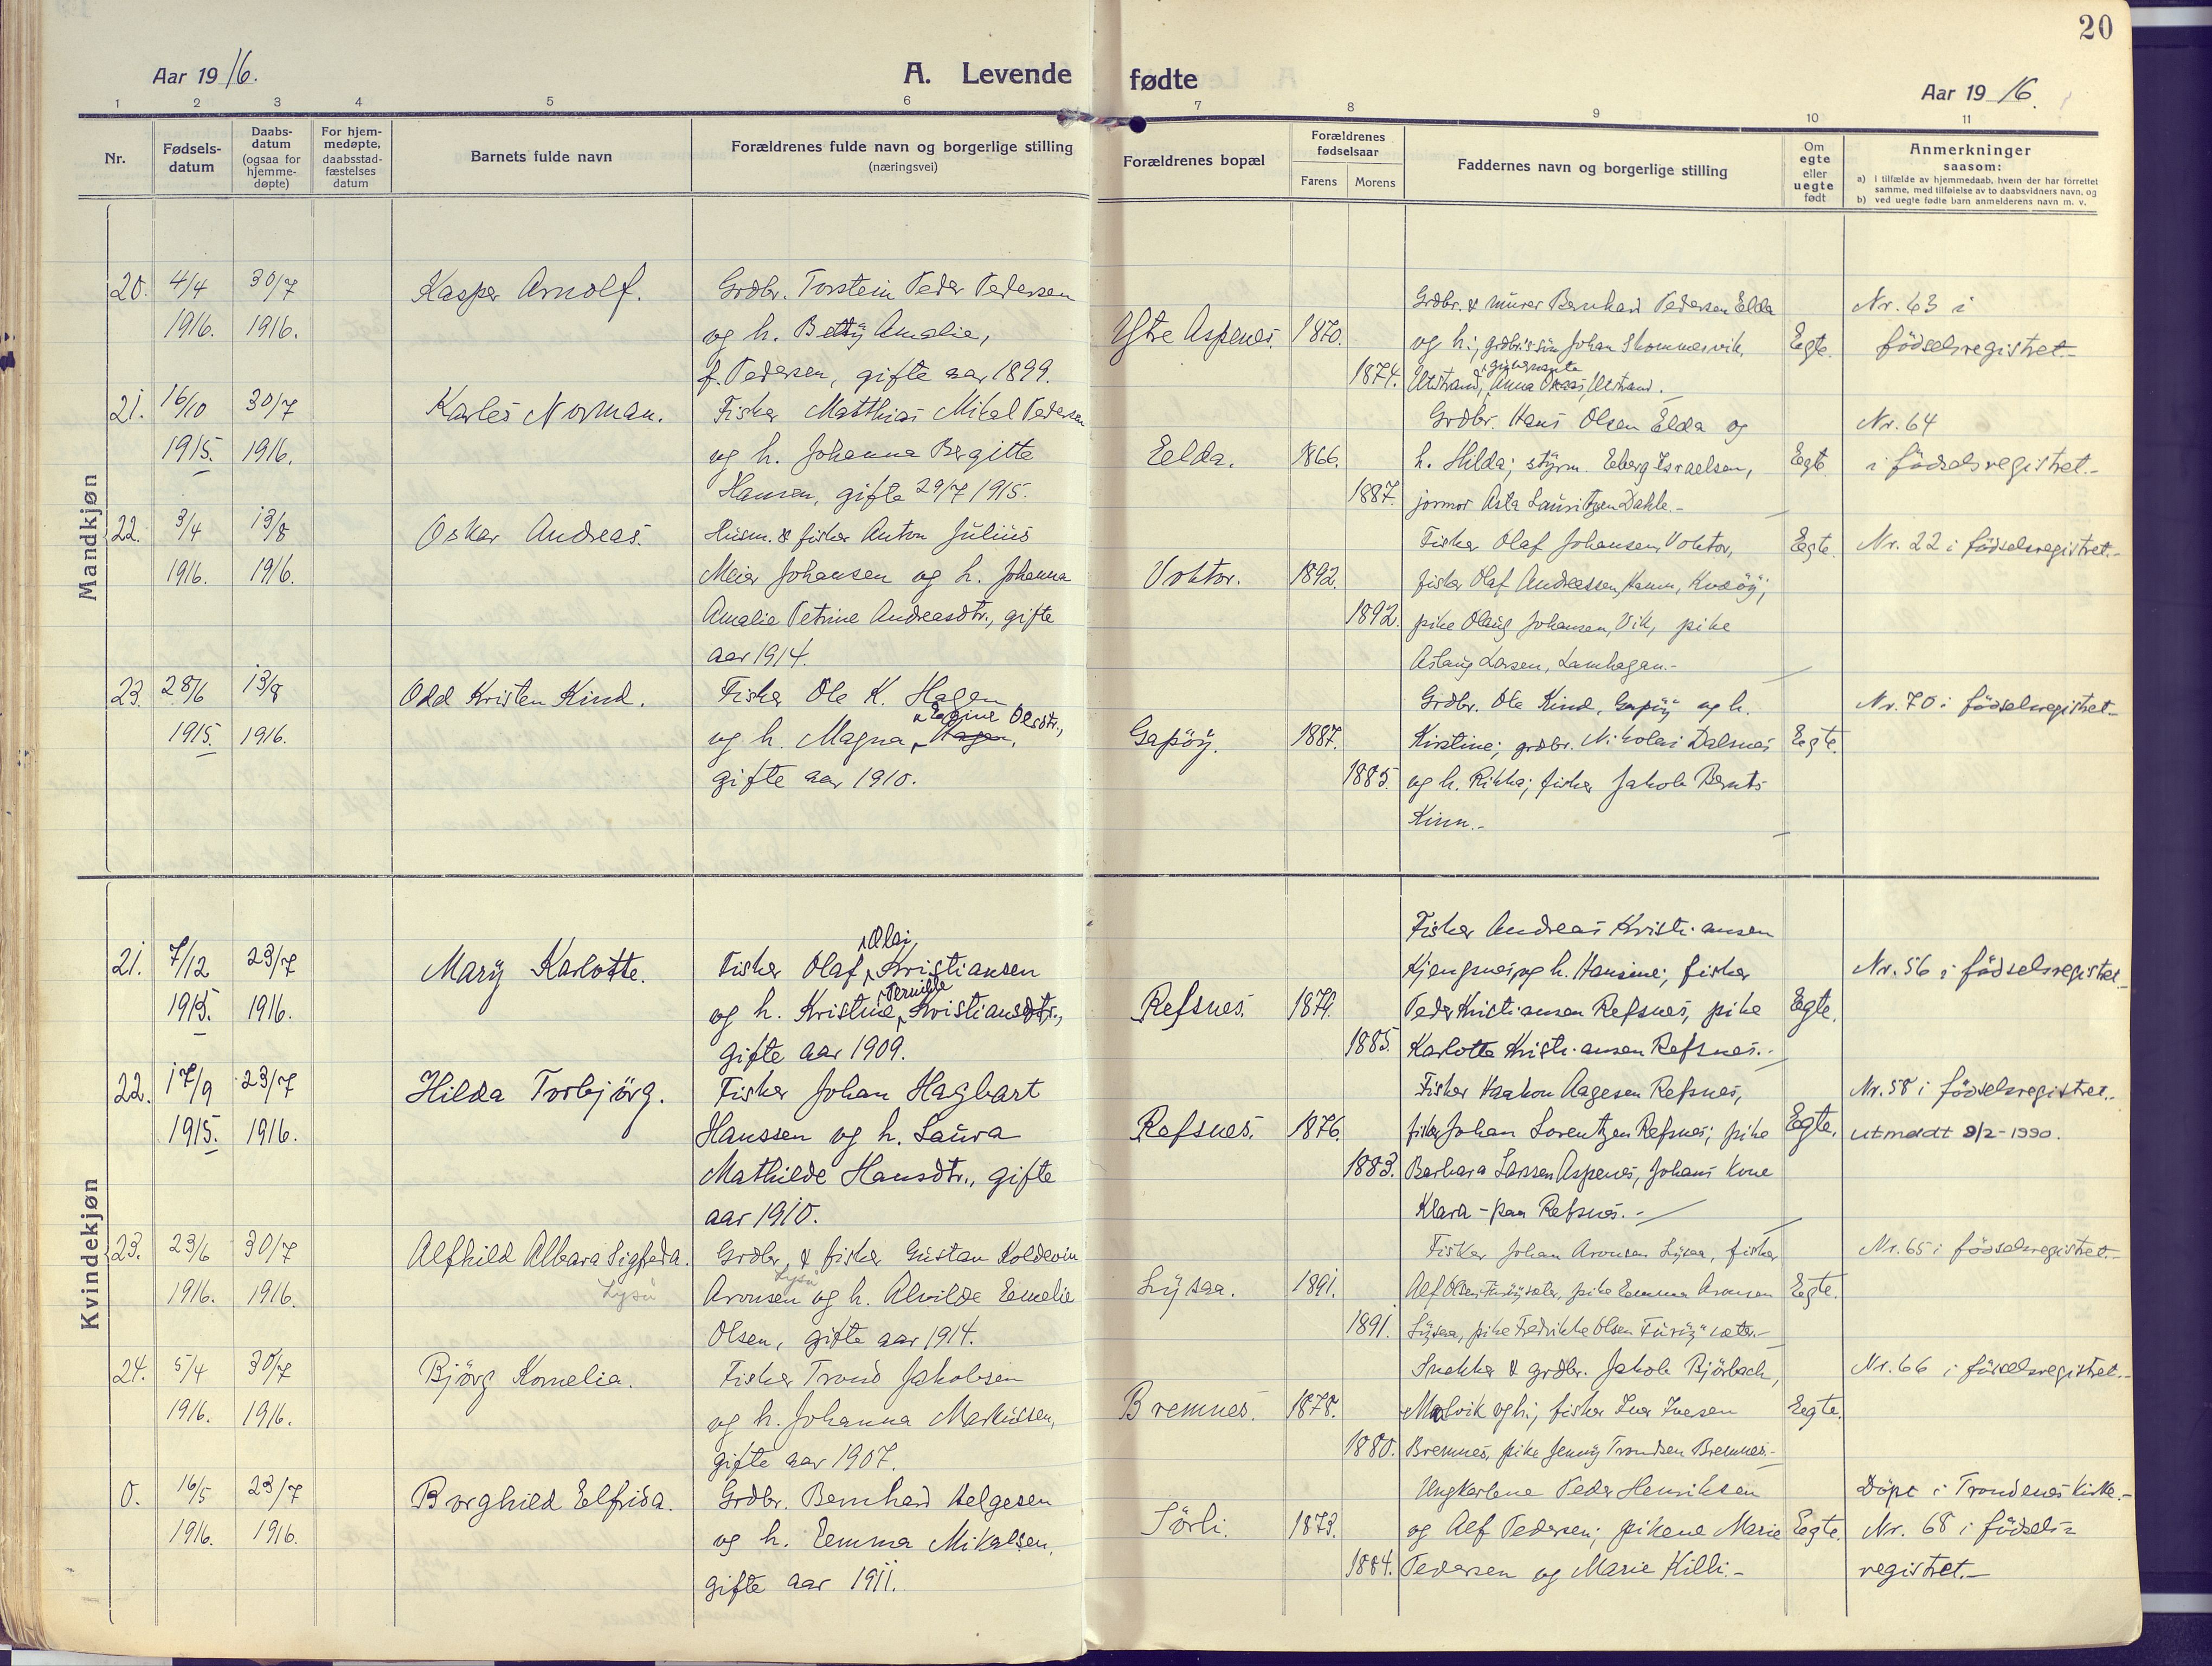 20
Aar 19 16.
A. Levende fødte
Aar 19 16.
1 2 3 4 5 6 7 8 9 10 11
Nr.
Fødsels-
datum
Daabs-
datum
(ogsaa for
hjemme-
døpte)
For hjem-
medøpte,
daabsstad-
fæstelses
datum
Barnets fulde navn
Forældrenes fulde navn og borgerlige stilling
(næringsvei)
Forældrenes bopæl
Forældrenes
fødselsaar
Farens
Morens
Faddernes navn og borgerlige stilling
Om
egte
eller
uegte
født
Anmerkninger
saasom:
a) i tilfælde av hjemmedaab, hvem der har forrettet
samme, med tilføielse av to daabsvidners navn, og
b) ved uegte fødte barn anmelderens navn m. v.
Mandkjøn
20. 4/4 30/7 Kasper Arnolf. Grdbr. Torstein Peder Pedersen
1916. 1916. og h. Betty Amalie,
f. Pedersen, gifte aar 1899.
Ytre Aspenes. 1870.
1874.
Grdbr. & murer Bernhard Pedersen Elda
og h.; grdbr.s søn Johan Skommesvik,
Utstrand, Anna Utstrand.
Egte.
Nr. 63 i
födselsregistret.-
21. 16/10 30/7 Karles Norman. Fisker Matthias Mikal Pedersen
1915. 1916. og h. Johanna Bergitte
Hansen, gifte 29/7 1915.
Eelda. 1866.
1887.
Grdbr. Hans Olsen Elda og
h. Hilda; styrm. Eeberg Israelsen,
jormor Asta Lauritzen Dahle.-
Egte
Nr. 64
i födselsregistret.-
22. 3/4 13/8 Oskar Andreas. Husm. & fisker Anton Julius
1916. 1916. Meier Johansen og h. Johanna
Amalie Petrine Andreasdtr., gifte
aar 1914.
Voktor. 1892.
1892.
Fisker Olaf Johansen, Voktor,
fisker Olaf Andreassen, Hamn, Kvæöy;
pike Olaug Johansen, Vik, pike
Aslaug Larsen, Lamhagan.-
Egte.
Nr. 22 i födselsregistret.-
23. 28/6 13/8 Odd Kristen Kind. Fisker Ole K. Hagen
1915. 1916. og h. Magna Olsdtr., Hagen,
gifte aar 1910.
Gapöy. 1887.
1885.
Grdbr. Ole Kind, Gapöy og h.
Kirstine; grdbr. Nikolai Dalsnes
og h. Rikka; fisker Jakob Bernts
Kinn.-
Egte.
Nr. 70 i födselsregistret.-
Kvindekjøn
21. 7/12 23/7 Mary Karlotte. Fisker Olaf Olai Kristiansen
1915. 1916. og h. Kristine Pernille Kristiansdtr.,
gifte aar 1909.
Refsnes. 1879.
1885.
Fisker Andreas Kristiansen
Kjengsnes og h. Hansine; fisker
Peder Kristiansen Refsnes, pike
Karlotte Kristiansen Refsnes.-
Egte.
Nr. 56 i födselsregistret.-
22. 17/9 23/7 Hilda Torbjörg. Fisker Johan Hagbart
1915. 1916. Hanssen og h. Laura
Mathilde Hansdtr., gifte
aar 1910.
Refsnes. 1876.
1883.
Fisker Haakon Aagesen Refsnes,
fisker Johan Lorentzen Refsnes; pike
Barbara Larssen Aspenes, Johans kone
Klara - paa Refsnes.-
Egte.
Nr. 58 i födselsregistret.-
utmeldt 9/2-1990.
23. 23/6 30/7 Alfhild Albara Sigfreda. Grdbr. & fisker Gustav Koldevin
Lyså
1916. 1916. Aronsen Lyså og h. Alvilde Emelie
Olsen, gifte aar 1914.
Lysaa. 1891.
1891.
Fisker Johan Aronsen Lysaa, fisker
Alf Olsen, pike Emma Aronsen
Lysaa, pike Fredrikke Olsen
Egte.
Nr. 65 i födselsregistret.-
24. 5/4 30/7 Björg Kornelia. Fisker Trond Jakobsen
1916. 1916. og h. Johanna Markussen,
gifte aar 1907.
Bremnes. 1878.
1880.
Snekker & grdbr. Jakob Bjørbach,
Melvik og h.; fisker Iver Ivesen
Bremnes, pike Jenny Trondsen Bremnes.-
Egte.
Nr. 66 i födselsregistret.-
0. 16/5 23/7 Borghild Elfrida. Grdbr. Bernhard Helgesen
1916. 1916. og h. Emma Mikalsen,
gifte aar 1911.
Sörli. 1873.
1884.
Ungkarlene Peder Henriksen
og Alf Pedersen; pikene Marie
Pedersen og Marie Killi.-
Egte.
Döpt i Trondenes kirke.-
Nr. 68 i födsels=
registret.-